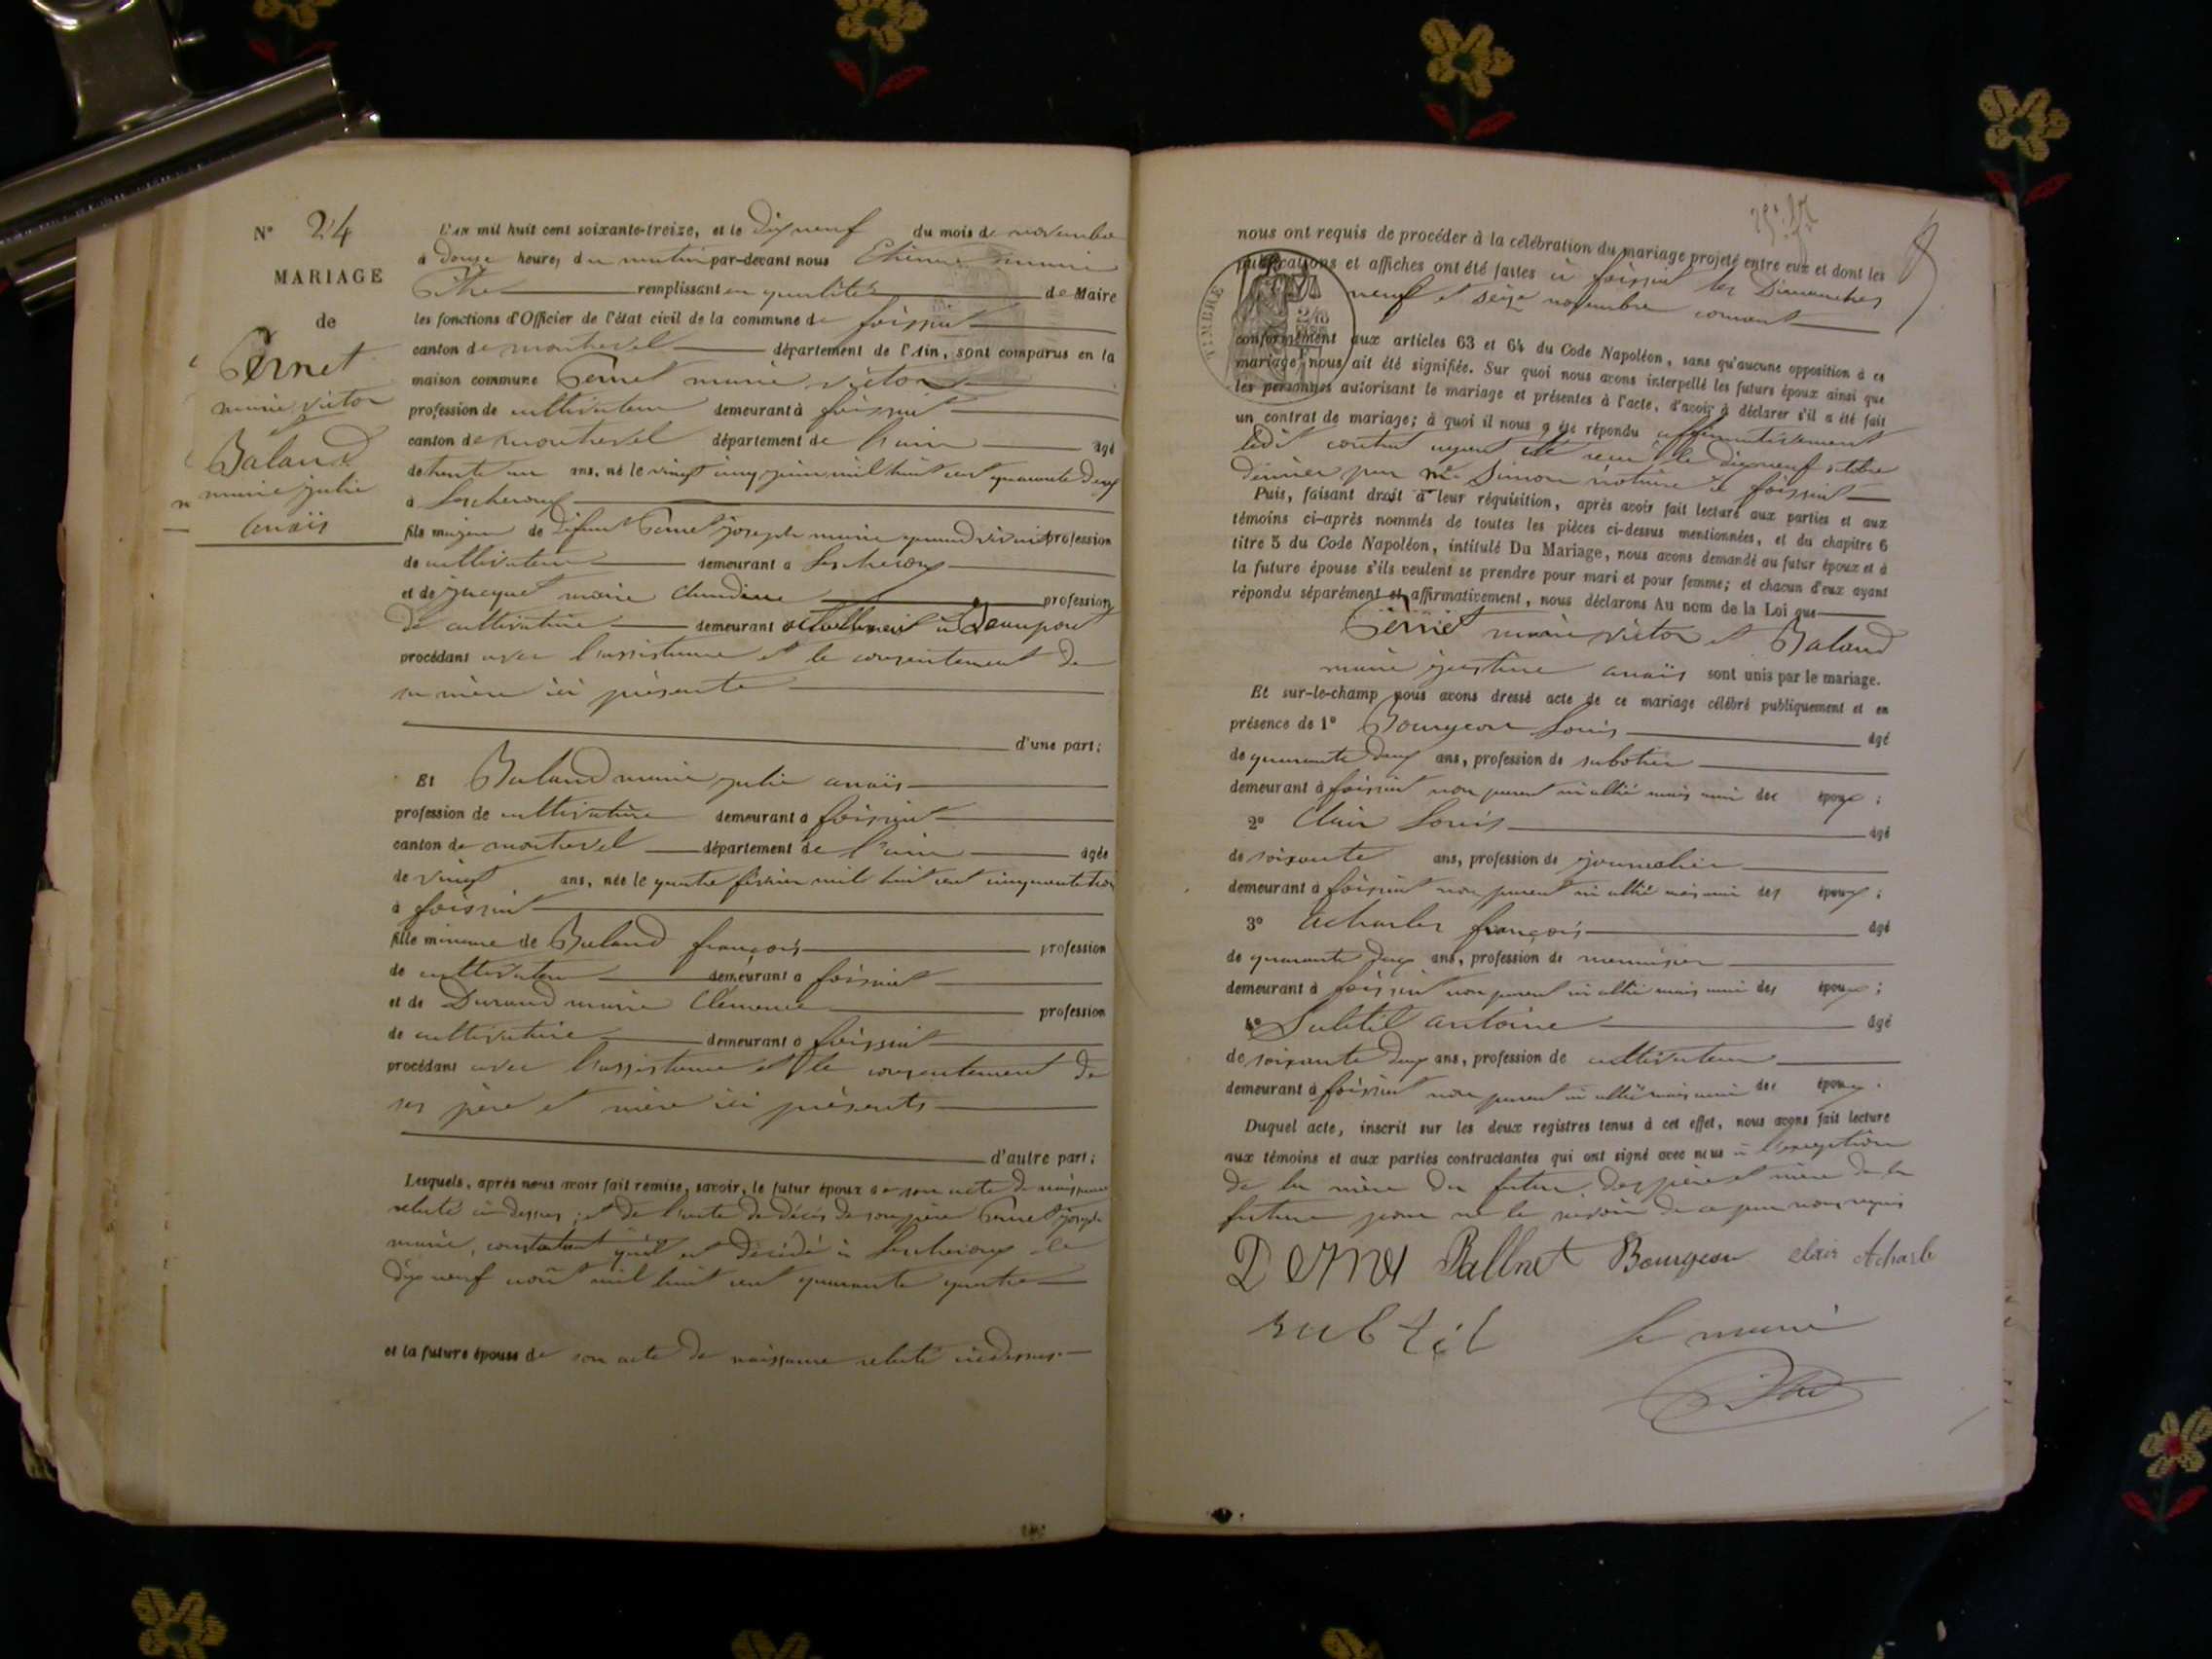 N° 24
MARIAGE
de
Pernet
marie victor
et
Baland
marie julie
anaïs
L'an mil huit cent soixante-treize, et le dix neuf du mois de novembre
à douze heures du matin par-devant nous Etienne marie
remplissant en qualité de Maire
les fonctions d'Officier de l'état civil de la commune de foissiat
canton de montrevel département de l'Ain, sont comparus en la
maison commune Pernet marie victor
profession de cultivateur demeurant à foissiat
canton de montrevel département de l'ain âgé
de trente un ans, né le vingt cinq juin mil huit cent quarante deux
à Lescheroux
fils majeur de défunt Pernet joseph marie quand vivait profession
de cultivateur demeurant à Lescheroux
et de jacquet marie claudine profession
de cultivatrice demeurant actuellement à Beaupont
procédant avec l'assistance et le consentement de
sa mère ici présente
d'une part;
Et Baland marie julie anaïs
profession de cultivatrice demeurant à foissiat
canton de montrevel département de l'ain âgée
de vingt ans, née le quatre février mil huit cent cinquante trois
à foissiat
fille mineure de Baland françois profession
de cultivateur demeurant à foissiat
et de Durand marie Clémence profession
de cultivatrice demeurant à foissiat
procédant avec l'assistance et le consentement de
ses père et mère ici présents
d'autre part;
Lesquels, après nous avoir fait remise, savoir, le futur époux de son acte de naissance
relaté ci dessus; et de l'acte de décès de son père Pernet joseph
marie, constatant qu'il est décédé à Lescheroux le
dix neuf août mil huit cent quarante quatre
et la future épouse de son acte de naissance relaté ci dessus
nous ont requis de procéder à la célébration du mariage projeté entre eux et dont les
publications et affiches ont été faites à foissiat les Dimanches
neuf et seize novembre courant
TIMBRE
conformément aux articles 63 et 64 du Code Napoléon, sans qu'aucune opposition à ce
mariage nous ait été signifiée. Sur quoi nous avons interpellé les futurs époux ainsi que
les personnes autorisant le mariage et présentes à l'acte, d'avoir à déclarer s'il a été fait
un contrat de mariage; à quoi il nous a été répondu affirmativement
ledit contrat ayant été reçu le dix neuf octobre
dernier par me Simon notaire à foissiat
Puis, faisant droit à leur réquisition, après avoir fait lecture aux parties et aux
témoins ci-après nommés de toutes les pièces ci-dessus mentionnées, et du chapitre 6
titre 5 du Code Napoléon, intitulé Du Mariage, nous avons demandé au futur époux et à
la future épouse s'ils veulent se prendre pour mari et pour femme; et chacun d'eux ayant
répondu séparément et affirmativement, nous déclarons Au nom de la Loi que
Pernet marie victor et Baland
marie justine anaïs sont unis par le mariage.
Et sur-le-champ nous avons dressé acte de ce mariage célébré publiquement et en
présence de 1° Bourgeon Louis âgé
de quarante deux ans, profession de sabotier
demeurant à foissiat non parent ni allié mais ami des époux;
2° Clair Louis âgé
de soixante ans, profession de journalier
demeurant à foissiat non parent ni allié mais ami des époux;
3° Acharles françois âgé
de quarante deux ans, profession de menuisier
demeurant à foissiat non parent ni allié mais ami des époux;
4° Subtil antoine âgé
de soixante deux ans, profession de cultivateur
demeurant à foissiat non parent ni allié mais ami des époux.
Duquel acte, inscrit sur les deux registres tenus à cet effet, nous avons fait lecture
aux témoins et aux parties contractantes qui ont signé avec nous à l'exception
de la mère du futur, des père et mère de la
future pour ne le savoir de ce par nous requis
Bourgeon clair Acharle
subtil Le maire